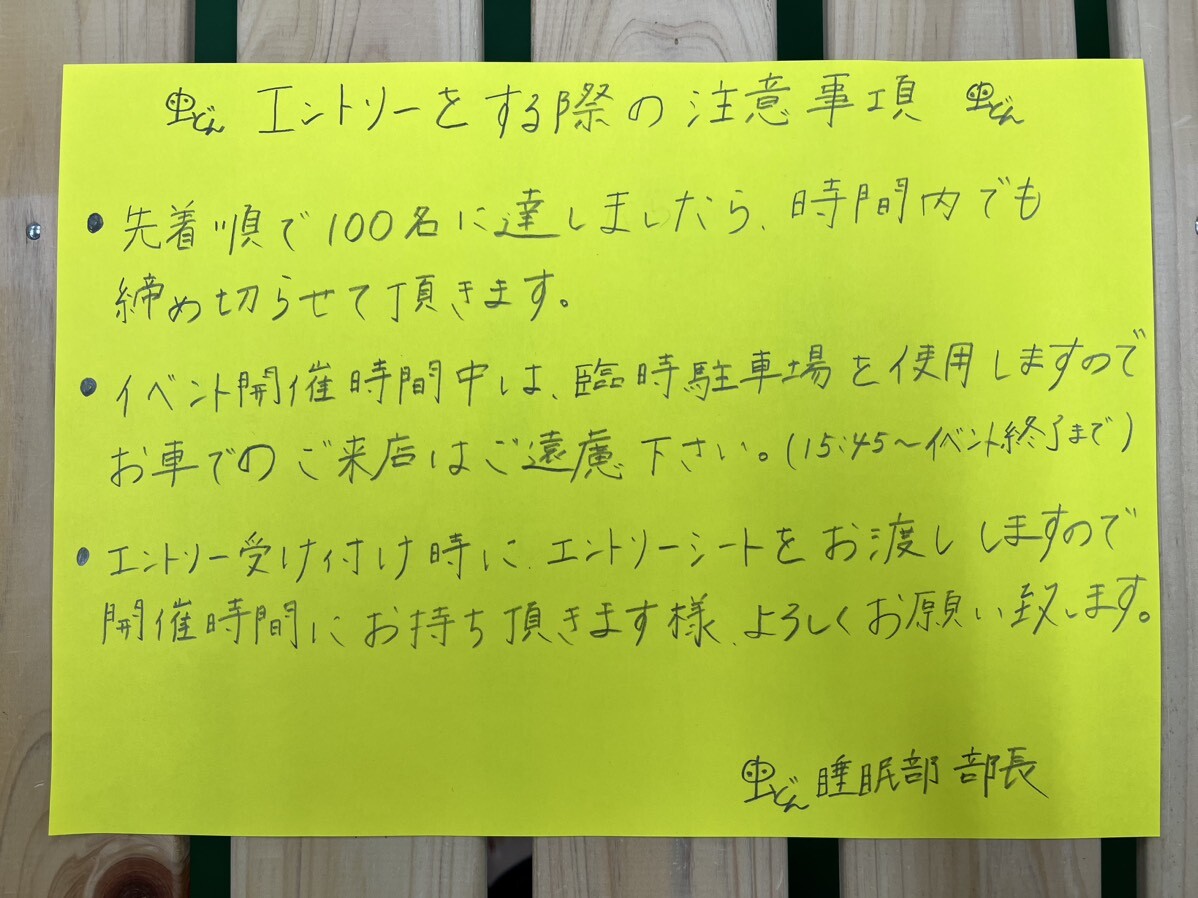 虫どん エントリーをする際の注意事項 虫どん
• 先着順で100名に達しましたら、時間内でも
締め切らせて頂きます。
• イベント開催時間中は、臨時駐車場を使用しますので
お車でのご来店はご遠慮下さい。(15:45〜イベント終了まで)
• エントリー受け付け時に、エントリーシートをお渡ししますので
開催時間にお持ち頂きます様、よろしくお願い致します。
虫どん睡眠部 部長